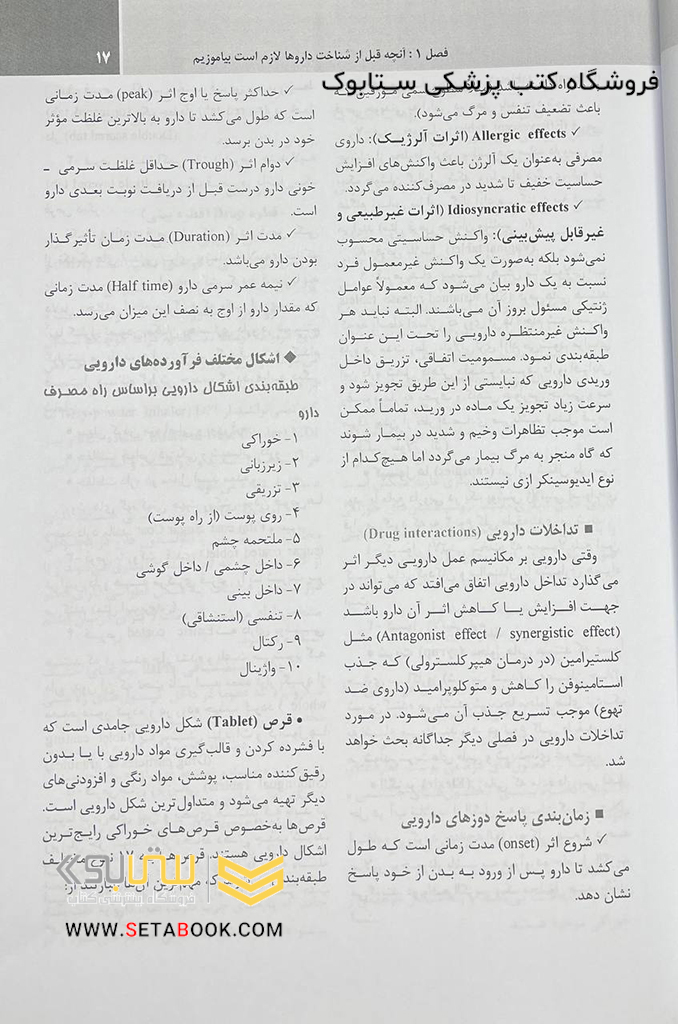 فصل ۱ : آنچه قبل از شناخت داروها لازم است بیاموزیم
۱۷
فروشگاه کتب پزشکی ستابوک
باعث تضعیف تنفس و مرگ می‌شود).
✓ Allergic effects (اثرات آلرژیک): داروی
مصرفی به‌عنوان یک آلرژن باعث واکنش‌های افزایش
حساسیت خفیف تا شدید در مصرف‌کننده می‌گردد.
✓ Idiosyncratic effects (اثرات غیرطبیعی و
غیرقابل پیش‌بینی): واکنش حساسیتی محسوب
نمی‌شود بلکه به‌صورت یک واکنش غیرمعمول فرد
نسبت به یک دارو بیان می‌شود کـه معمولاً عوامل
ژنتیکی مسئول بروز آن مـی‌باشـند. البتـه نبایـد هـر
واکنش غیرمنتظره دارویـی را تحـت ایـن عنـوان
طبقه‌بندی نمـود. مسـمومیت اتفـاقی، تزریـق داخـل
وریدی دارویی که نبایستی از این طریق تجویز شود و
سرعت زیاد تجویز یک مـاده در وریـد، تمامـاً ممکـن
است موجب تظاهرات وخیم و شدید در بیمـار شـوند
که گاه منجر به مرگ بیمار می‌گردد اما هیچ‌کدام از
نوع ایدیوسینکر ازی نیستند.
■ تداخلات دارویی (Drug interactions)
وقتی دارویی بر مکانیسم عمل دارویـی دیگـر اثـر
می‌گذارد تداخل دارویی اتفاق می‌افتد که می‌تواند در
جهـت افـزایش یـا کـاهش اثـر آن دارو باشد
(Antagonist effect / synergistic effect) مثـل
کلستیرامین (در درمـان هیپرکلسـترولی) کـه جـذب
استامینوفن را کـاهش و متوکلوپرامیـد (داروی ضـد
تهوع) موجب تسریع جذب آن مـی‌شـود. در مـورد
تداخلات دارویی در فصلی دیگر جداگانه بحث خواهد
شد.
■ زمان‌بندی پاسخ دوزهای دارویی
✓ شروع اثر (onset) مدت زمانی است کـه طـول
می‌کشد تا دارو پـس از ورود بـه بـدن از خـود پاسـخ
نشان دهد.
✓ حداکثر پاسخ یا اوج اثـر (peak) مـدت زمـانی
است که طول می‌کشد تا دارو به بالاترین غلظت مؤثر
خود در بدن برسد.
✓ دوام اثـر (Trough) حـداقل غلظـت سـرمی –
خونی دارو درست قبل از دریافت نوبت بعـدی دارو
است.
✓ مدت اثـر (Duration) مـدت زمـان تأثیرگـذار
بودن دارو می‌باشد.
✓ نیمه عمر سرمی دارو (Half time) مدت زمانی
که مقدار دارو از اوج به نصف این میزان می‌رسد.
◆ اشکال مختلف فرآورده‌های دارویی
طبقه‌بندی اشکال دارویی براساس راه مصـرف
دارو
۱- خوراکی
۲- زیرزبانی
۳- تزریقی
۴- روی پوست (از راه پوست)
۵- ملتحمه چشم
۶- داخل چشمی / داخل گوشی
۷- داخل بینی
۸- تنفسی (استنشاقی)
۹- رکتال
۱۰- واژینال
• قـرص (Tablet) شکل دارویی جامدی است که
با فشرده کردن و قالب‌گیری مواد دارویی با یـا بـدون
رقیق‌کننده مناسب، پوشش، مواد رنگی و افزودنی‌های
دیگر تهیه می‌شود و متداول‌ترین شکل دارویی است.
قرص‌ها به‌خصوص قرص‌هـای خـوراکی رایـج‌تـرین
اشکال دارویی هستند.
ستابوک
فروشگاه اینترنتی کتاب
WWW.SETABOOK.COM